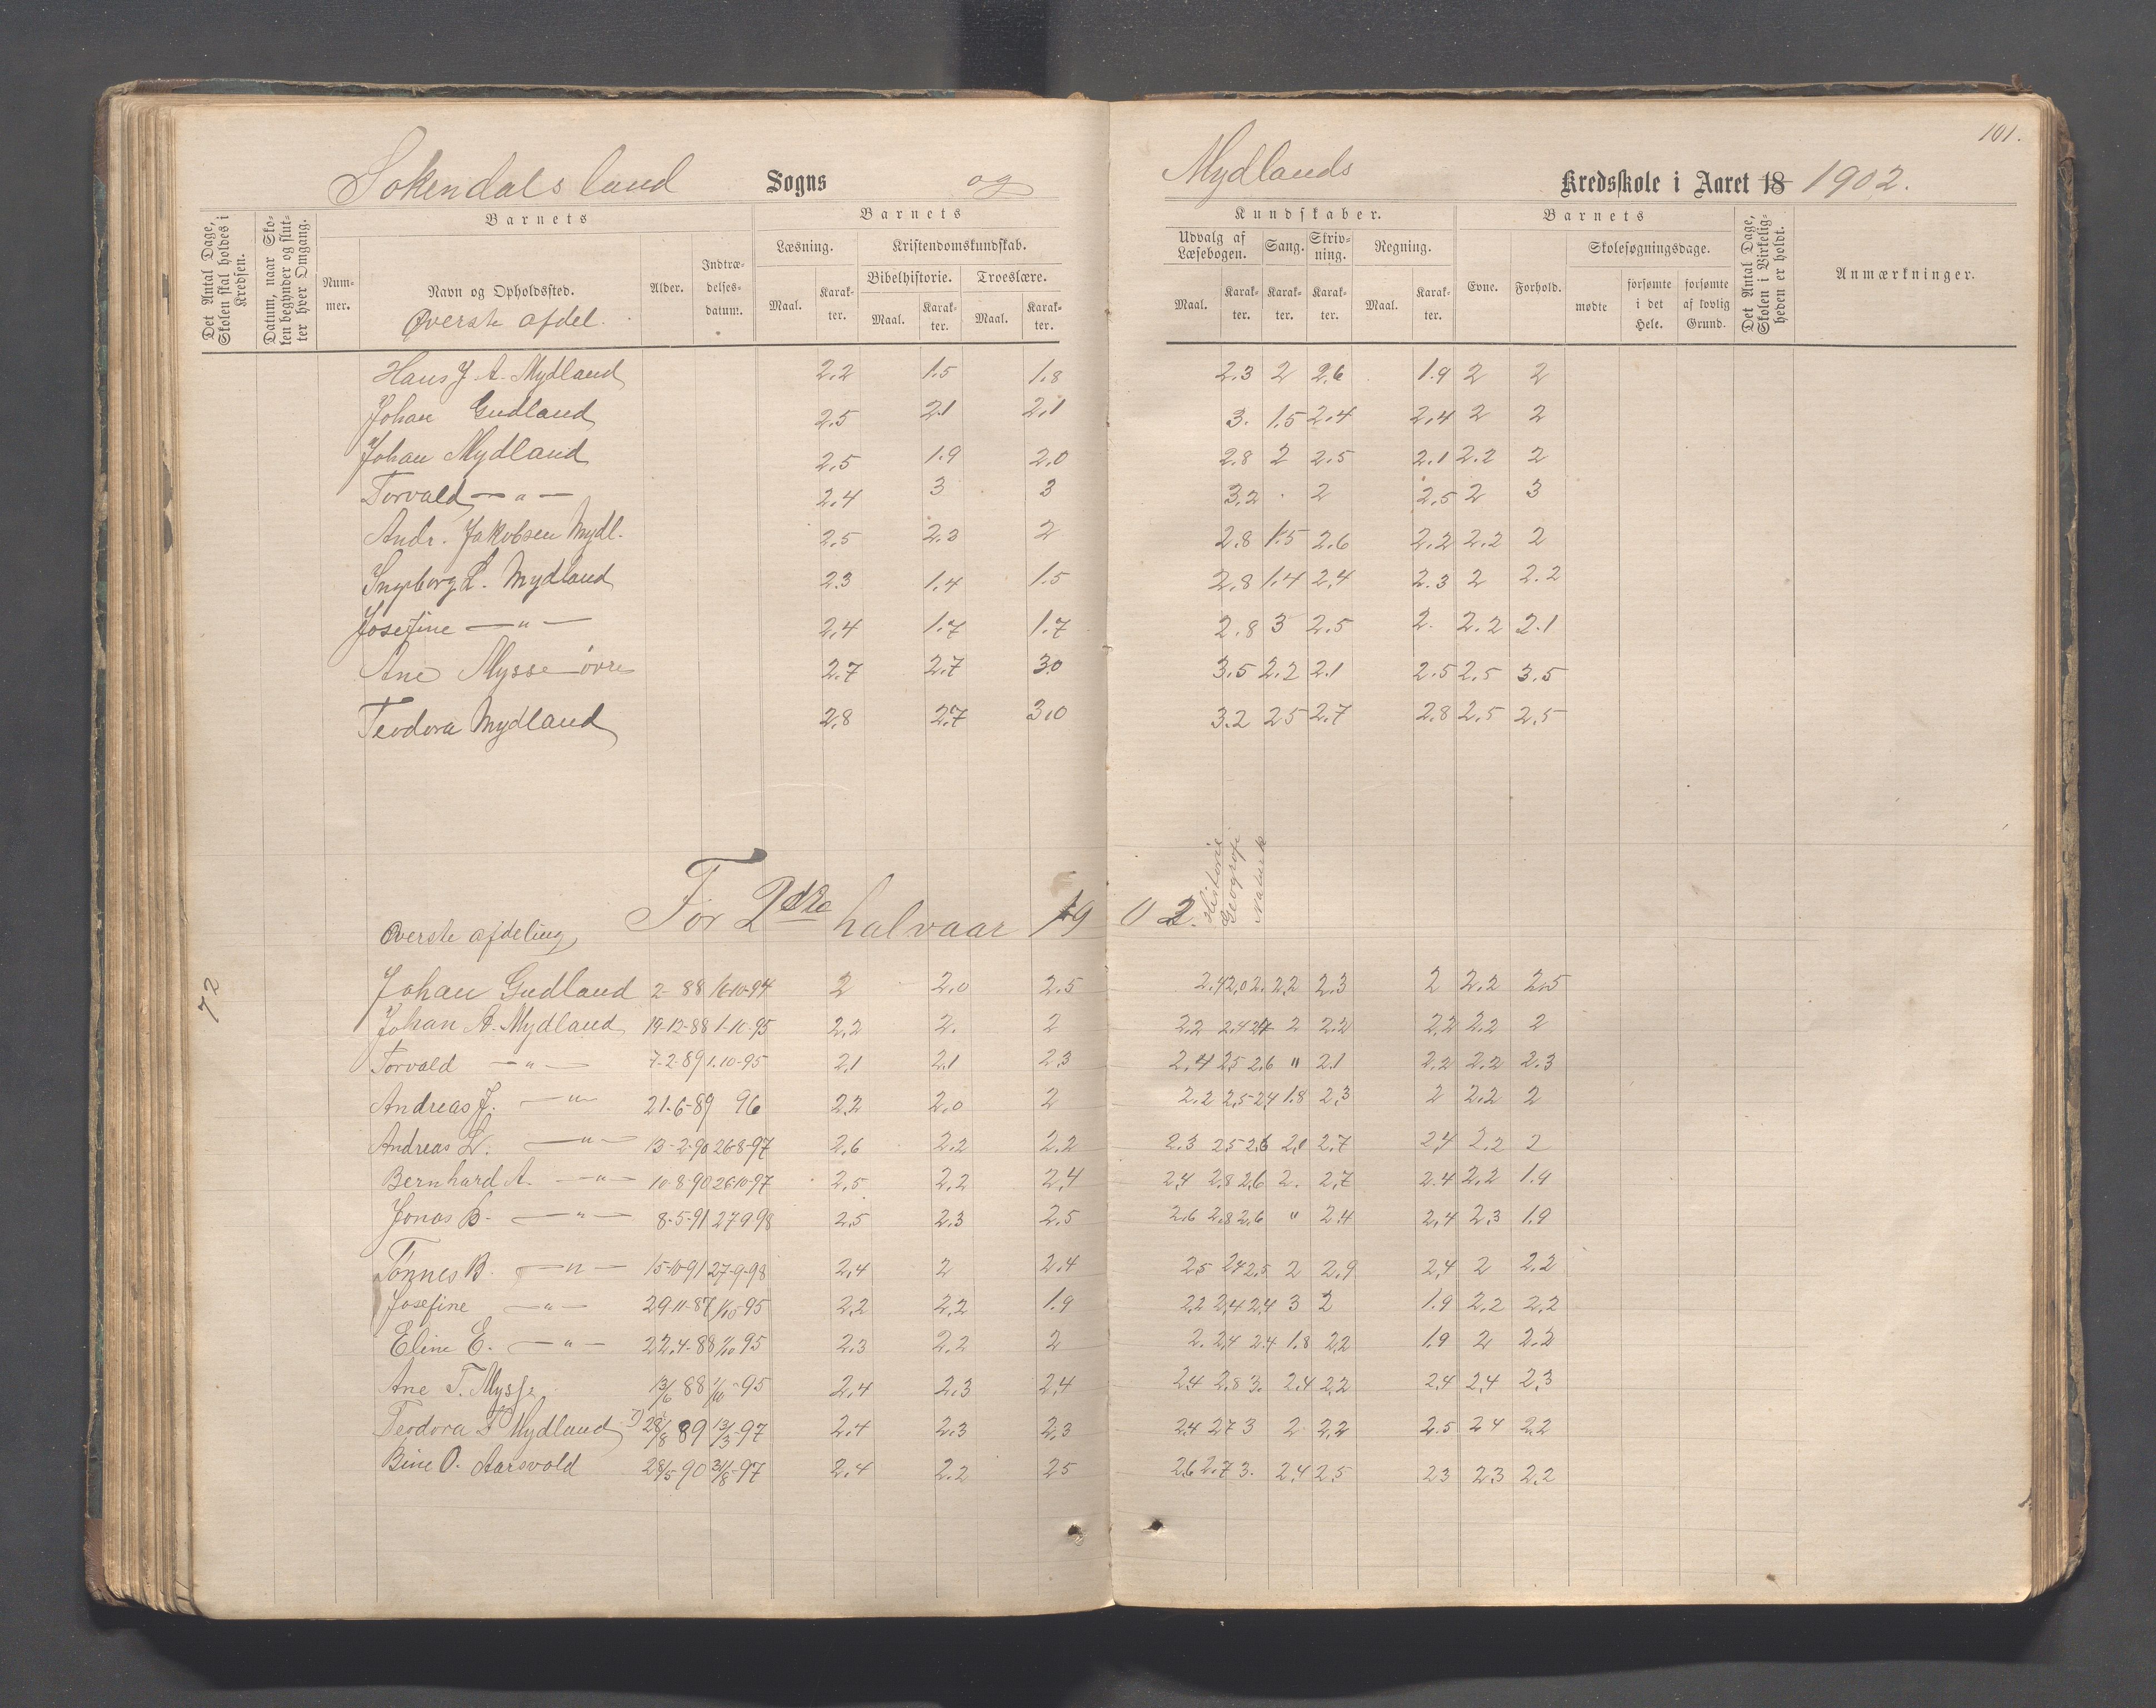 101.
Sokendals land Sogns og Mydlands Kredsskole i Aaret 18 1902.
Det Antal Dage, Skolen skal holdes i Kredsen.
Datum, naar Skolen begynder og slutter hver Omgang.
Barnets
Barnets
Kundskaber.
Barnets
Nummer.
Navn og Opholdssted.
Alder.
Indtrædelsesdatum.
Læsning.
Kristendomskundskab.
Bibelhistorie.
Troeslære.
Maal. Karakter. Maal. Karakter. Maal. Karakter.
Udvalg af Læsebogen. Sang. Skrivning. Regning.
Maal. Karakter. Karakter. Karakter. Maal. Karakter.
Evne. Forhold.
Skolesøgningsdage.
mødte forsømte i det Hele. forsømte af lovlig Grund.
Det Antal Dage, Skolen i Virkeligheden er holdt.
Anmærkninger.
Øverste afdel.
Hans J. A. Mydland 2.2 1.5 1.8 2.3 2 2.6 1.9 2 2
Johan Gudland 2.5 2.1 2.1 3. 1.5 2.4 2.4 2 2
Johan Mydland 2.5 1.9 2.0 2.8 2 2.5 2.1 2.2 2
Torvald — " — 2.4 3 3 3.2 2 2.5 2 3
Andr. Jakobsen Mydl. 2.5 2.2 2 2.8 1.5 2.6 2.2 2.2 2
Ingeborg L. Mydland 2.3 1.4 1.5 2.8 1.4 2.4 2.3 2 2.2
Josefine — " — 2.4 1.7 1.7 2.8 3 2.5 2. 2.2 2.1
Ane Mysse øvre 2.7 2.7 3.0 3.5 2.2 2.1 2.5 2.5 3.5
Teodora Mydland 2.8 2.7 3.0 3.2 2.5 2.7 2.8 2.5 2.5
For 2det halvaar 1902.
Historie
Geografi
Naturk
Øverste afdeling
72
Johan Gudland 2- 88 16-10-94 2 2.0 2.5 2.4 2.0 2. 2.2 2.3 2 2.2 2.5
Johan A. Mydland 19-12-88 1-10-95 2.2 2. 2 2.2 2.4 2.7 2 2.2 2.2 2.2 2
Torvald — " — 7-2-89 1.10-95 2.1 2.1 2.3 2.4 2.5 2.6 " 2.1 2.2 2.2 2.3
Andreas J. — " — 21-6-89 96 2.2 2.0 2 2.2 2.5 2.4 1.8 2.3 2 2.2 2
Andreas L. — " — 13-2-90 26-8-97 2.6 2.2 2.2 2.3 2.5 2.6 2.1 2.7 2.4 2.2 2
Bernhard A. — " — 10-8-90 26-10-97 2.5 2.2 2.4 2.4 2.8 2.6 2. 2.7 2.4 2.2 1.9
Jonas B. — " — 8-5-91 27 9 98 2.5 2.3 2.5 2.6 2.8 2.6 " 2.4 2.4 2.3 1.9
Tønnes B. — " — 15-10-91 27-9-98 2.4 2 2.4 2.5 2.4 2.5 2 2.9 2.4 2 2.2
Josefine — " — 29-11-87 1/10-95 2.2 2.2 1.9 2.2 2.4 2.4 3 2 1.9 2.2 2.2
Eline E. — " — 22.4-88 1/10 95 2.3 2.2 2 2. 2.4 2.4 1.8 2.2 1.9 2 2.2
Ane T. Mysse 13/6 88 1/10-95 2.4 2.3 2.4 2.4 2.8 3. 2.4 2.2 2.4 2.4 2.3
Teodora T Mydland 28/8 89 13/3-97 2.4 2.3 2.3 2.4 2.7 3 2 2.2 2.5 2.4 2.2
Bine O. Aarsvold 28/5-90 31/8-97 2.4 2.2 2.5 2.6 2.7 3. 2.4 2.5 2.3 2.3 2.2